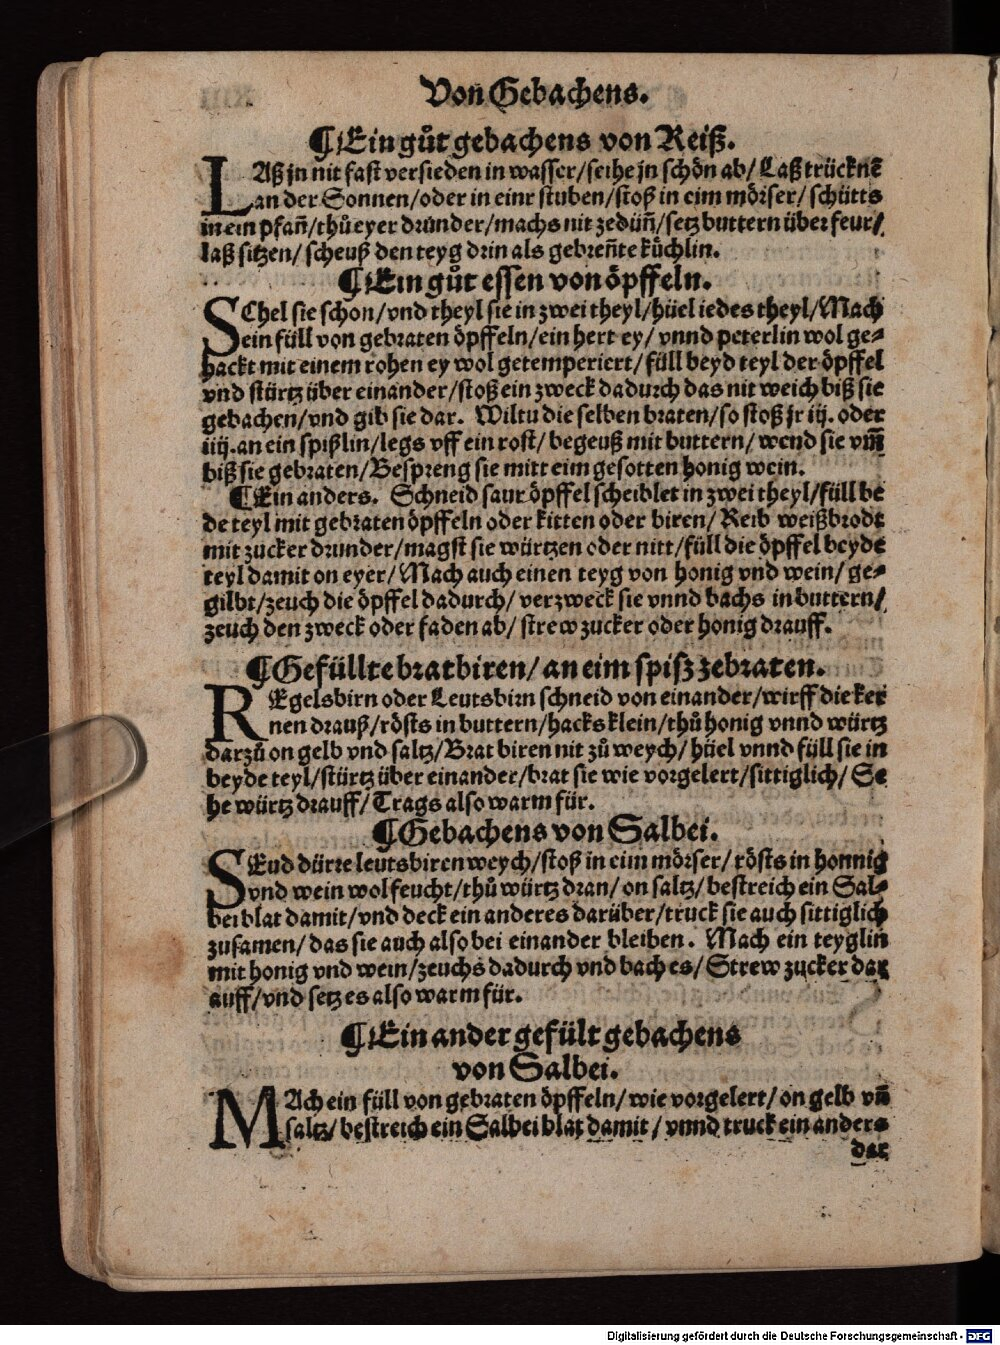 Von Gebachens.
¶Ein gůt gebachens von Reiß.
LAß jn nit fast versieden in wasser/seihe jn schön ab/Laß trücknē
an der Sonnen/oder in einr stuben/stoß in eim mörser/schütts
in ein pfañ/thů eyer drunder/machs nit zedüñ/setz buttern über feur/
laß sitzen/scheuß den teyg drin als gebreñte kůchlin.
¶Ein gůt essen von öpffeln.
SChel sie schon/vnd theyl sie in zwei theyl/hüel iedes theyl/Mach
ein füll von gebraten öpffeln/ein hert ey/vnnd peterlin wol ge⸗
hackt mit einem rohen ey wol getemperiert/füll beyd teyl der öpffel
vnd stürtz über einander/stoß ein zweck dadurch das nit weich biß sie
gebachen/vnd gib sie dar. Wiltu die selben braten/so stoß jr iij. oder
iiij. an ein spißlin/legs vff ein rost/begeuß mit buttern/wend sie vm̄
biß sie gebraten/Bespreng sie mitt eim gesotten honig wein.
¶Ein anders. Schneid saur öpffel scheiblet in zwei theyl/füll be
de teyl mit gebraten öpffeln oder kitten oder biren/Reib weißbrodt
mit zucker drunder/magst sie würtzen oder nitt/füll die öpffel beyde
teyl damit on eyer/Mach auch einen teyg von honig vnd wein/ge⸗
gilbt/zeuch die öpffel dadurch/verzweck sie vnnd bachs in buttern/
zeuch den zweck oder faden ab/strew zucker oder honig drauff.
¶Gefüllte bratbiren/an eim spisz zebraten.
REgelsbirn oder Leutsbirn schneid von einander/wirff die ker
nen drauß/rösts in buttern/hacks klein/thů honig vnnd würtz
darzů on gelb vnd saltz/Brat biren nit zů weych/hüel vnnd füll sie in
beyde teyl/stürtz über einander/brat sie wie vorgelert/sittiglich/Se
he würtz drauff/Trags also warm für.
¶Gebachens von Salbei.
SEud dürre leutsbiren weych/stoß in eim mörser/rösts in honnig
vnd wein wol feucht/thů würtz dran/on saltz/bestreich ein Sal⸗
bei blat damit/vnd deck ein anderes darüber/truck sie auch sittiglich
zusamen/das sie auch also bei einander bleiben. Mach ein teyglin
mit honig vnd wein/zeuchs dadurch vnd bach es/Strew zucker dar
auff/vnd setz es also warm für.
¶Ein ander gefült gebachens
von Salbei.
MAch ein füll von gebraten öpffeln/wie vorgelert/on gelb vñ
saltz/bestreich ein Salbei blat damit/vnnd truck ein anders
dar
Digitalisierung gefördert durch die Deutsche Forschungsgemeinschaft - DFG